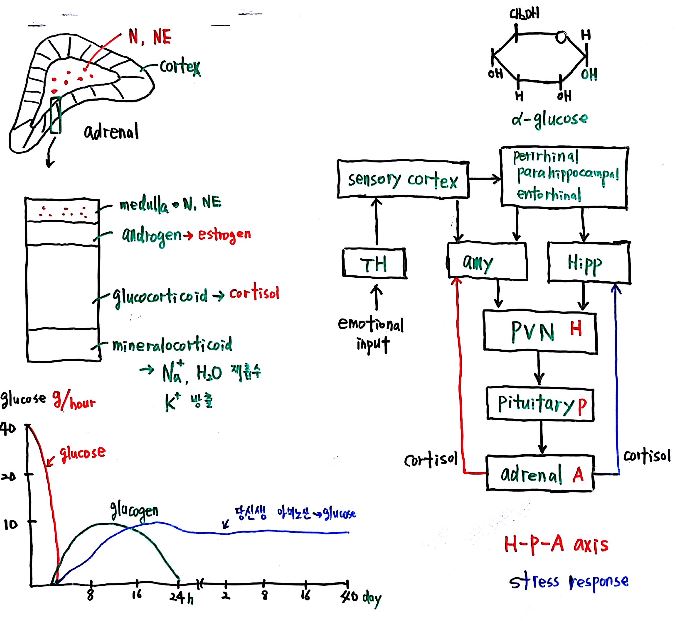 N, NE
cortex
adrenal
medulla N, NE
androgen → estrogen
glucocorticoid → cortisol
mineralocorticoid
→ Na⁺, H₂O 재흡수
K⁺ 방출
CH₂OH
O H
OH OH
H OH
α-glucose
sensory cortex
perirhinal
parahippocampal
entorhinal
TH
amy
Hipp
emotional
input
PVN H
pituitary P
cortisol
adrenal A
cortisol
H-P-A axis
stress response
glucose g/hour
40
glucose
20
glucogen
당신생 아미노산→glucose
10
8 16 24h 2 8 16 40 day